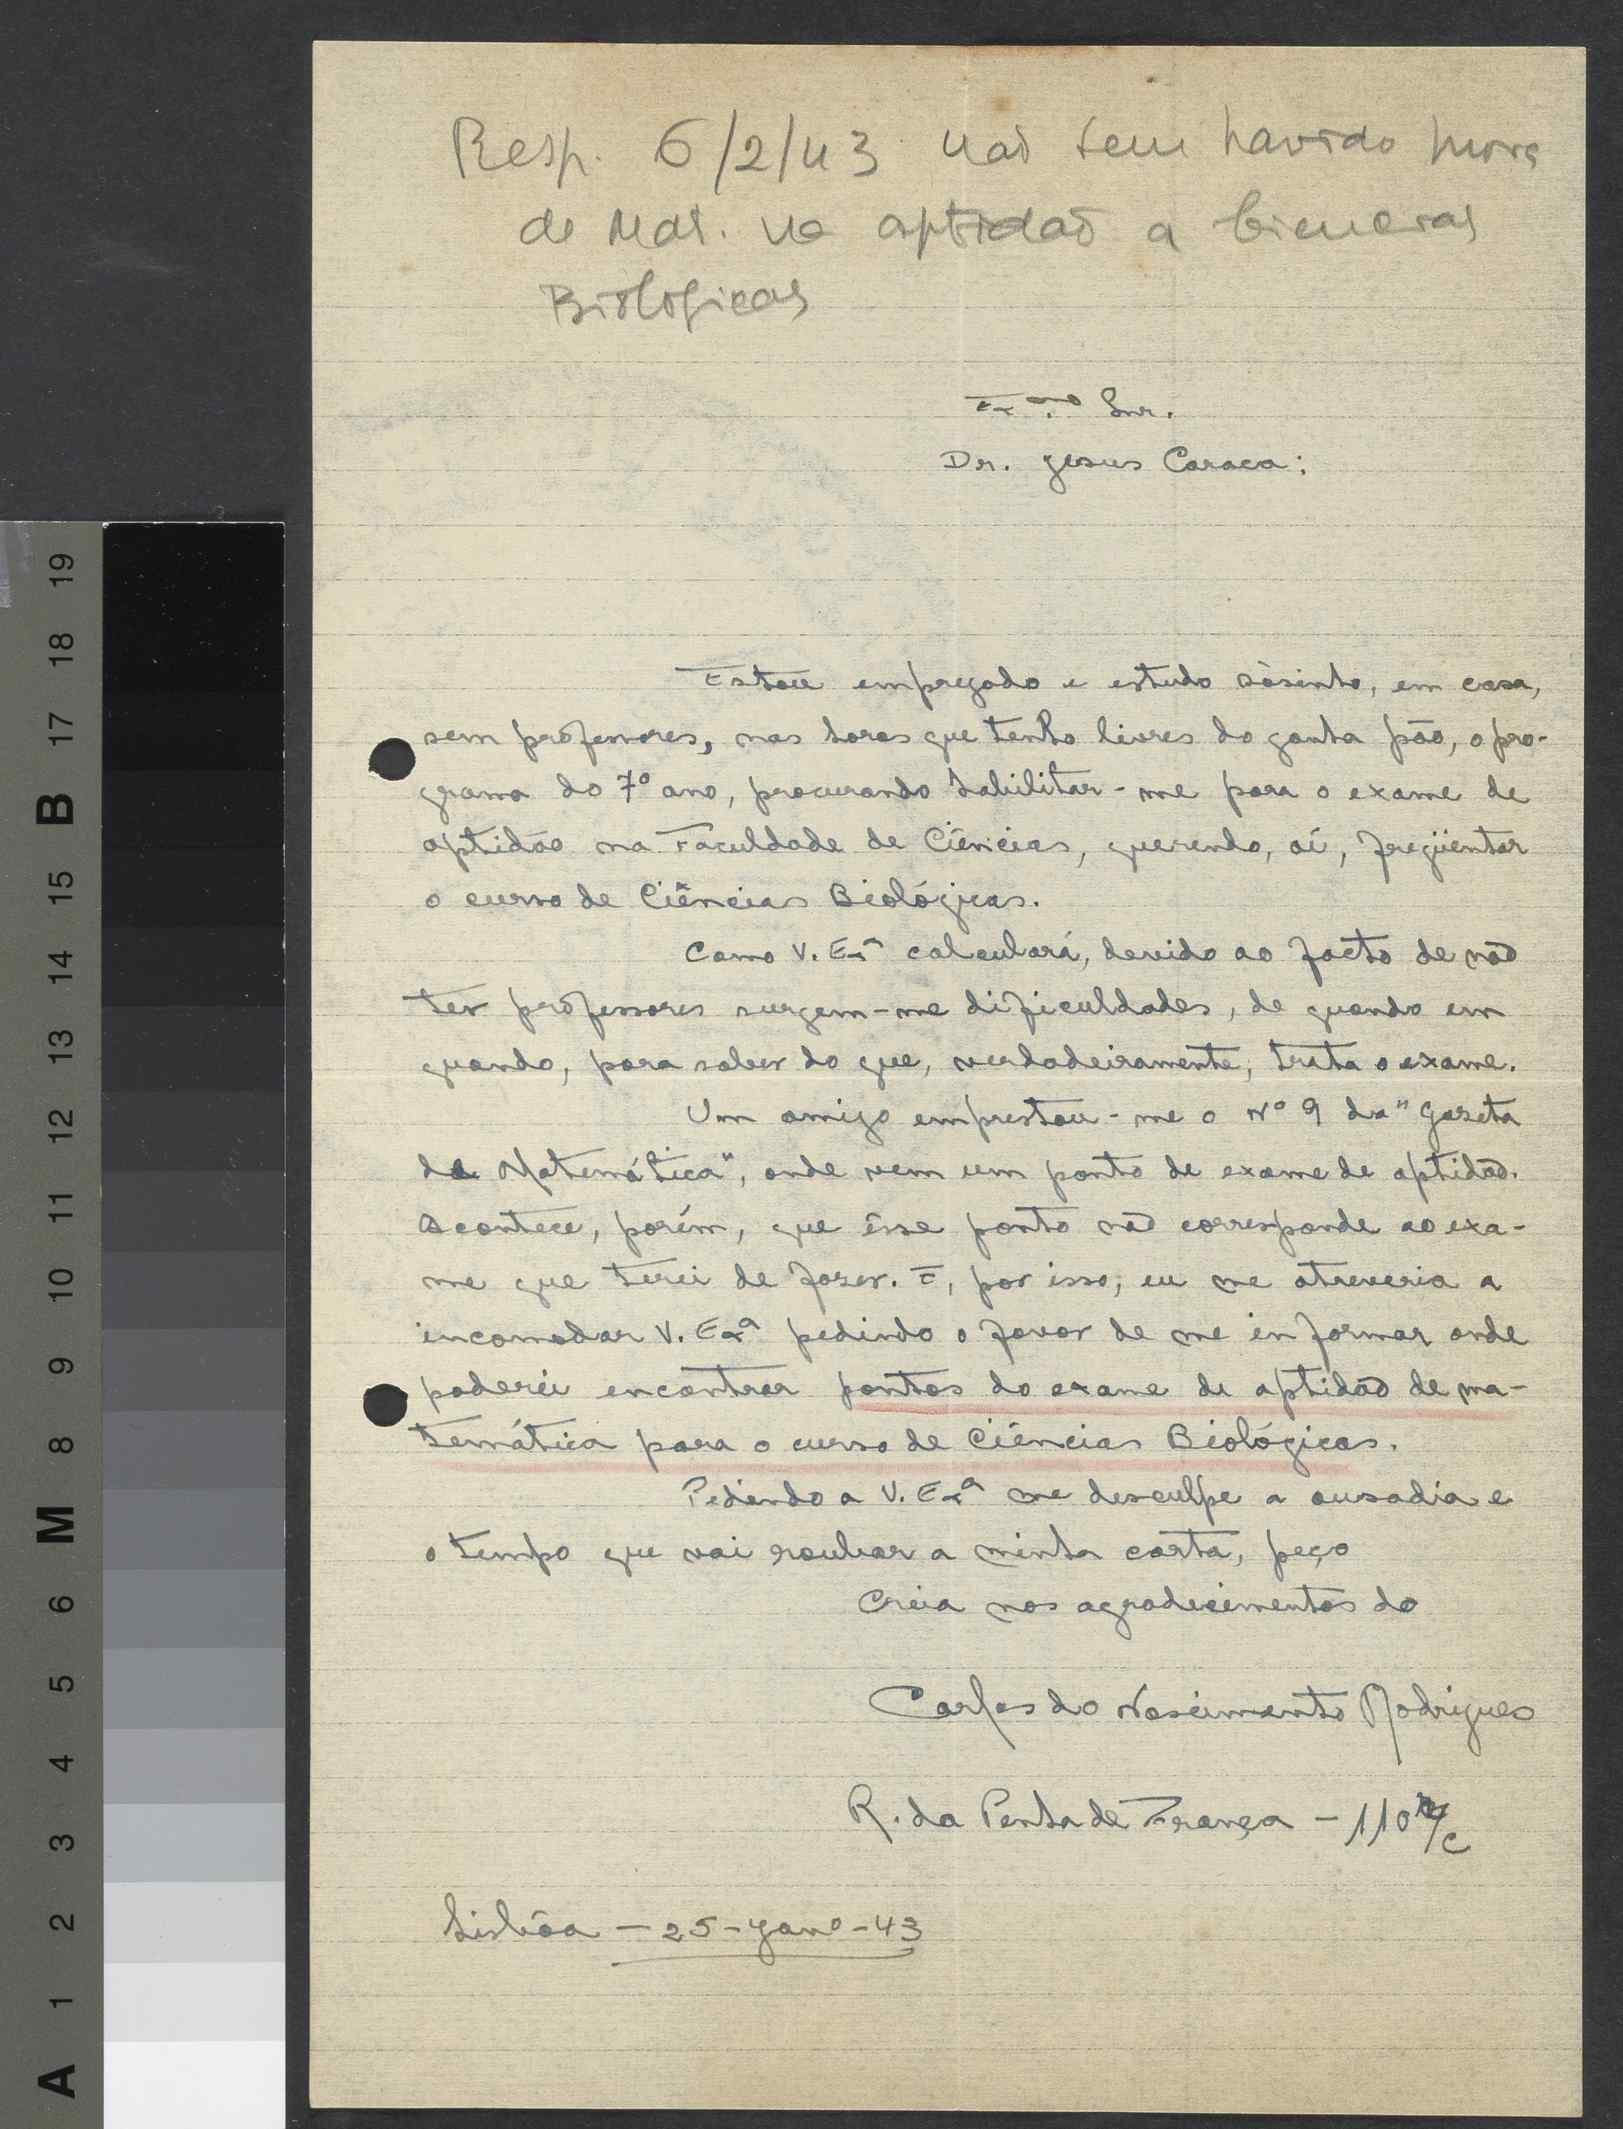 Resp. 6/2/43 não tem havido prova
de Mat. na aptidão a Ciencias
Biologicas
Ex.mo Snr.
Dr. Jesus Caraca:
Estou empregado e estudo sòsinho, em casa,
sem professores, nas horas que tenho livres do ganha pão, o pro-
grama do 7º ano, procurando habilitar-me para o exame de
aptidão na Faculdade de Ciências, querendo, aí, freqüentar
o curso de Ciências Biológicas.
Como V. Exª calculará, devido ao facto de não
ter professores surgem-me dificuldades, de quando em
quando, para saber do que, verdadeiramente, trata o exame.
Um amigo emprestou-me o Nº 9 da "Gazeta
de Matemática", onde vem um ponto de exame de aptidão.
Acontece, porém, que êsse ponto não corresponde ao exa-
me que terei de fazer. E, por isso, eu me atreveria a
incomodar V. Exª pedindo o favor de me informar onde
poderei encontrar pontos do exame de aptidão de ma-
temática para o curso de Ciências Biológicas.
Pedindo a V. Exª me desculpe a ousadia e
o tempo que vai roubar a minha carta, peço
creia nos agradecimentos do
Carlos do Nascimento Rodrigues
R. da Penha de França - 110 r/c
Lisbôa - 25-Janº-43
A 1 2 3 4 5 6 M 8 9 10 11 12 13 14 15 B 17 18 19